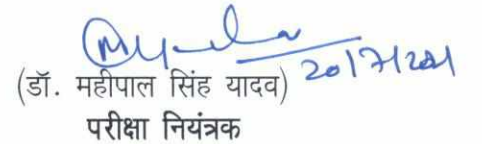 20/7/2021
(डॉ. महीपाल सिंह यादव)
परीक्षा नियंत्रक